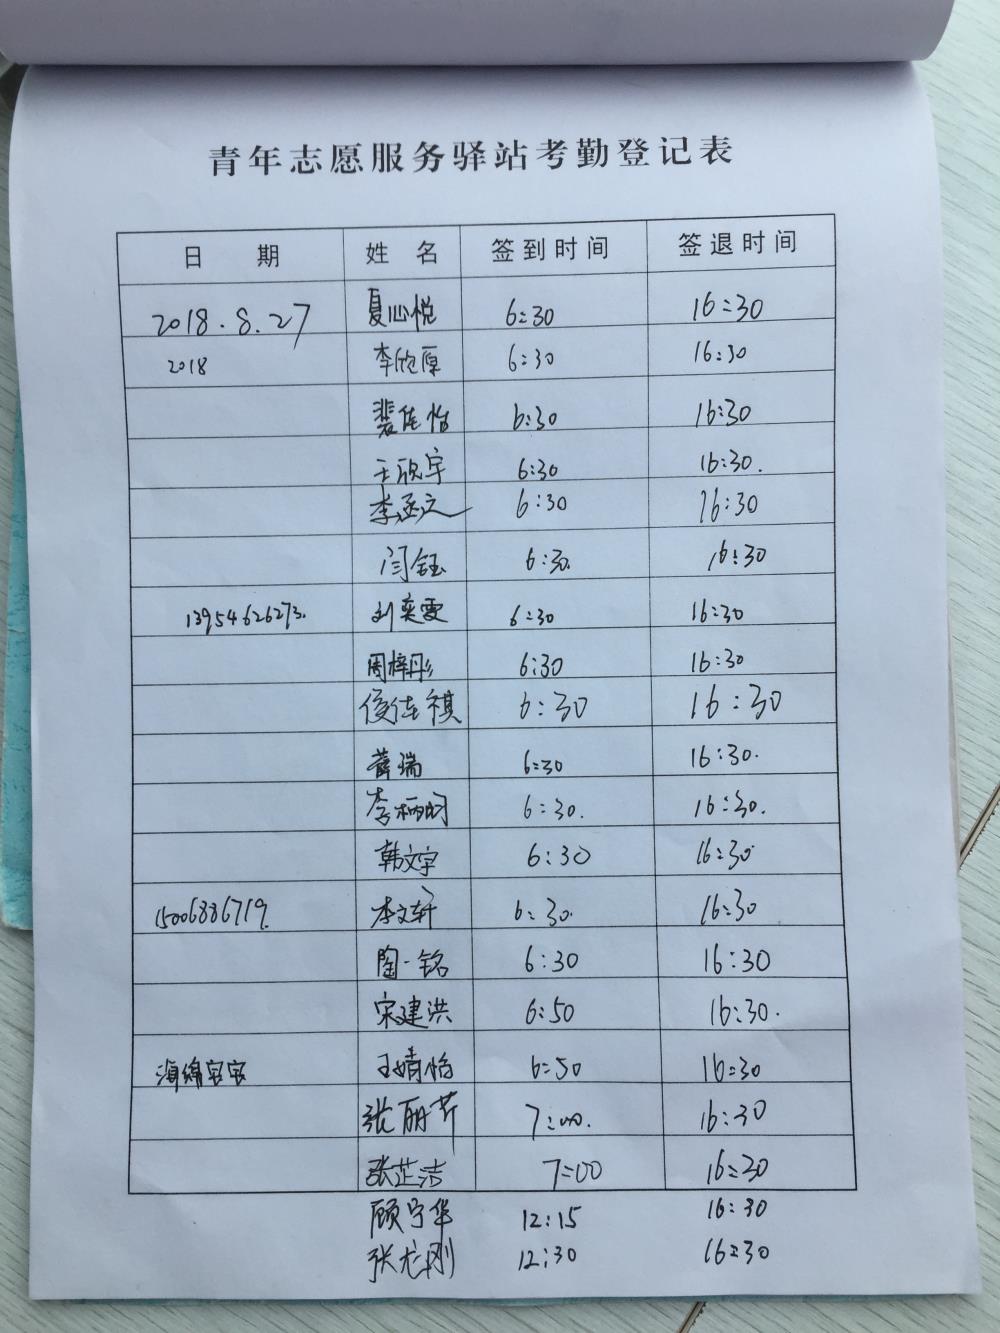 青年志愿服务驿站考勤登记表
日 期 姓 名 签到时间 签退时间
2018.8.27 夏心悦 6:30 16:30
2018 李欣原 6:30 16:30
裴佳怡 6:30 16:30
王欣宇 6:30 16:30.
李丞之 6:30 16:30
闫钰 6:30. 16:30
13954626273. 刘奕雯 6:30 16:30
周梓彤 6:30 16:30
侯佳祺 6:30 16:30
薛瑞 6:30 16:30.
李柄 6:30. 16:30.
韩文宇 6:30 16:30
15006886719. 李文轩 6:30. 16:30
陶一铭 6:30 16:30
宋建洪 6:50 16:30.
海绵宝宝 王婧怡 6:50 16:30
张丽芹 7:00. 16:30
张芷洁 7:00 16:30
顾宁华 12:15 16:30
张龙刚 12:30 16:30